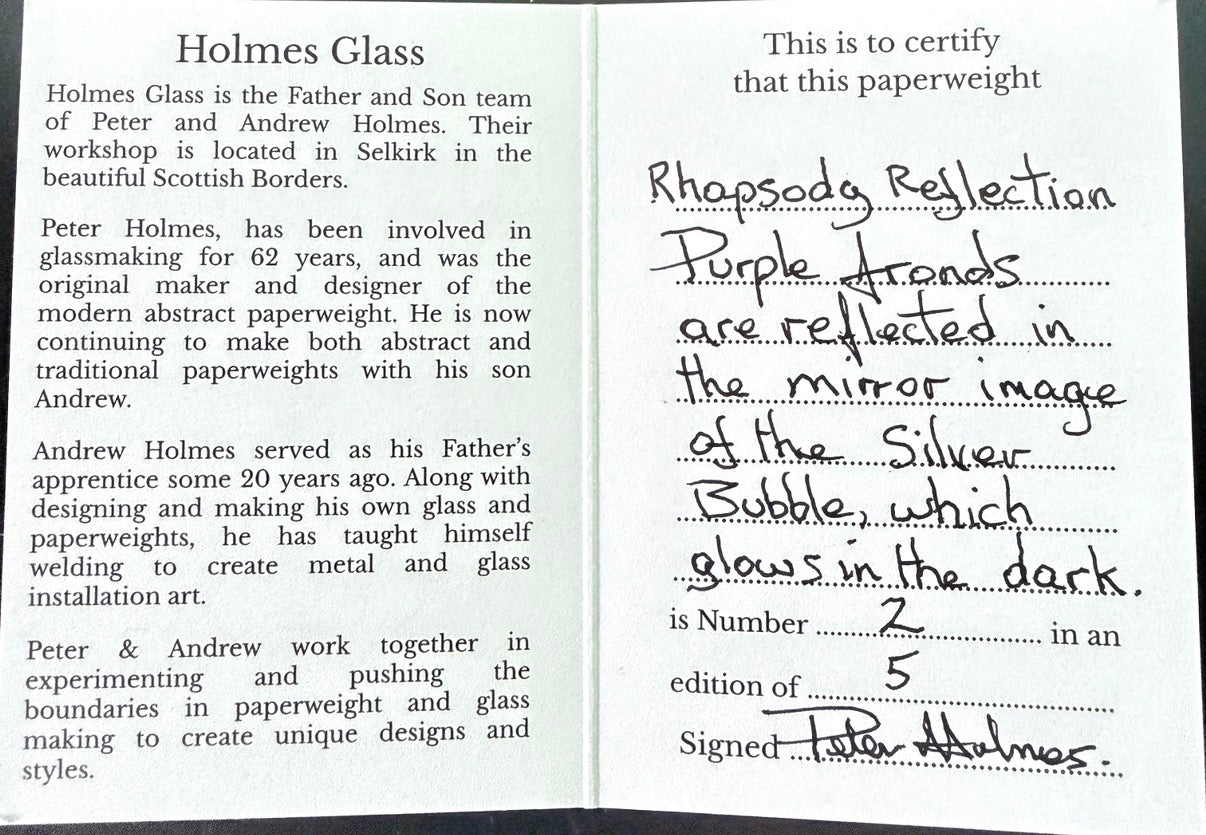 Holmes Glass
Holmes Glass is the Father and Son team
of Peter and Andrew Holmes. Their
workshop is located in Selkirk in the
beautiful Scottish Borders.
Peter Holmes, has been involved in
glassmaking for 62 years, and was the
original maker and designer of the
modern abstract paperweight. He is now
continuing to make both abstract and
traditional paperweights with his son
Andrew.
Andrew Holmes served as his Father's
apprentice some 20 years ago. Along with
designing and making his own glass and
paperweights, he has taught himself
welding to create metal and glass
installation art.
Peter & Andrew work together in
experimenting and pushing the
boundaries in paperweight and glass
making to create unique designs and
styles.
This is to certify
that this paperweight
Rhapsody Reflection
Purple fronds
are reflected in
the mirror image
of the Silver
Bubble, which
glows in the dark.
is Number 2 in an
edition of 5
Signed Peter Holmes.